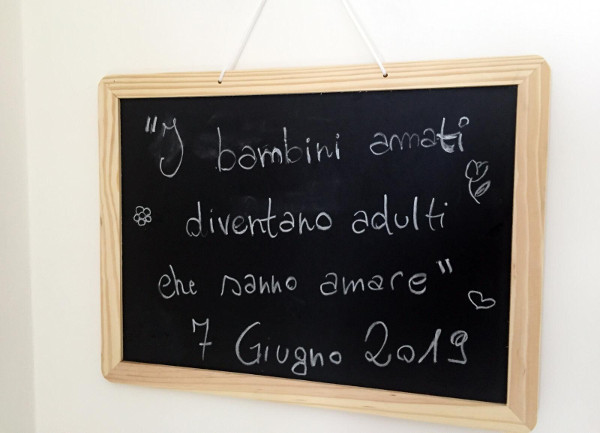 "I bambini amati
diventano adulti
che sanno amare"
7 Giugno 2019